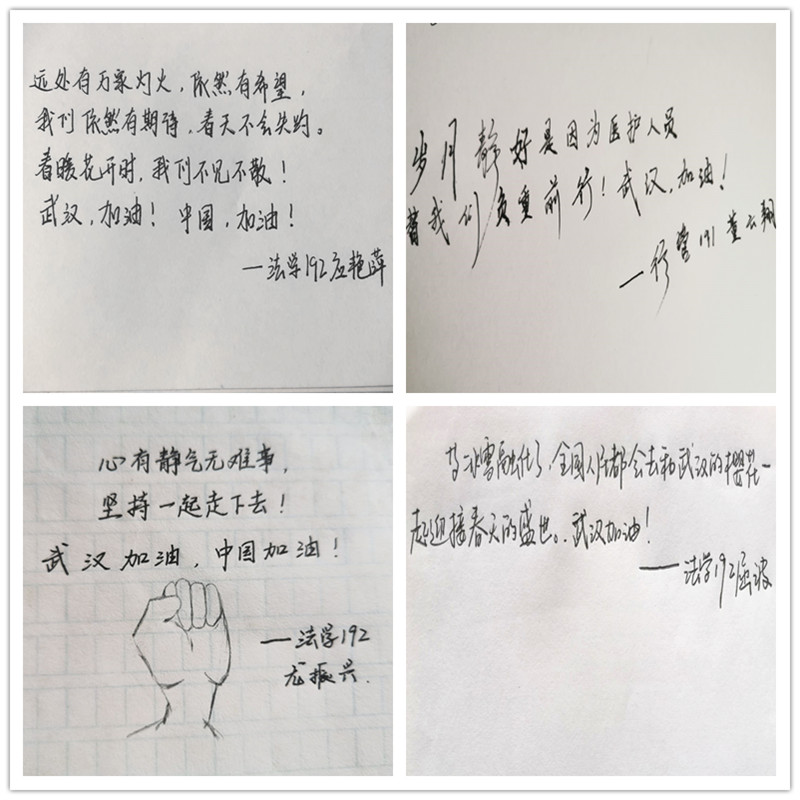 远处有万家灯火，依然有希望，
我们依然有期待，春天不会失约。
春暖花开时，我们不见不散！
武汉，加油！中国，加油！
—法学192应艳萍
岁月静好是因为医护人员
替我们负重前行！武汉，加油！
—行管191董云翔
心有静气无难事，
坚持一起走下去！
武汉加油，中国加油！
—法学192
龙振兴.
等冰雪融化了，全国人民都会去和武汉的樱花一
起迎接春天的盛世。武汉加油！
—法学192屈波